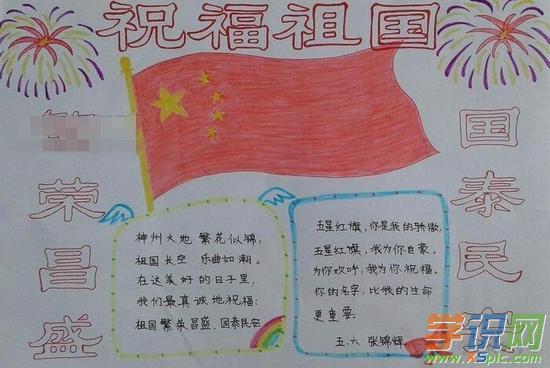 祝福祖国
荣昌盛
国泰民
神州大地 繁花似锦,
祖国长空 乐曲如潮。
在这美好的日子里,
我们最真诚地祝福:
祖国繁荣昌盛,国泰民安
五星红旗,你是我的骄傲,
五星红旗,我为你自豪。
为你欢呼,我为你祝福。
你的名字,比我的生命
更重要。
五.六 张锦辉
学识网
www.XSpic.com